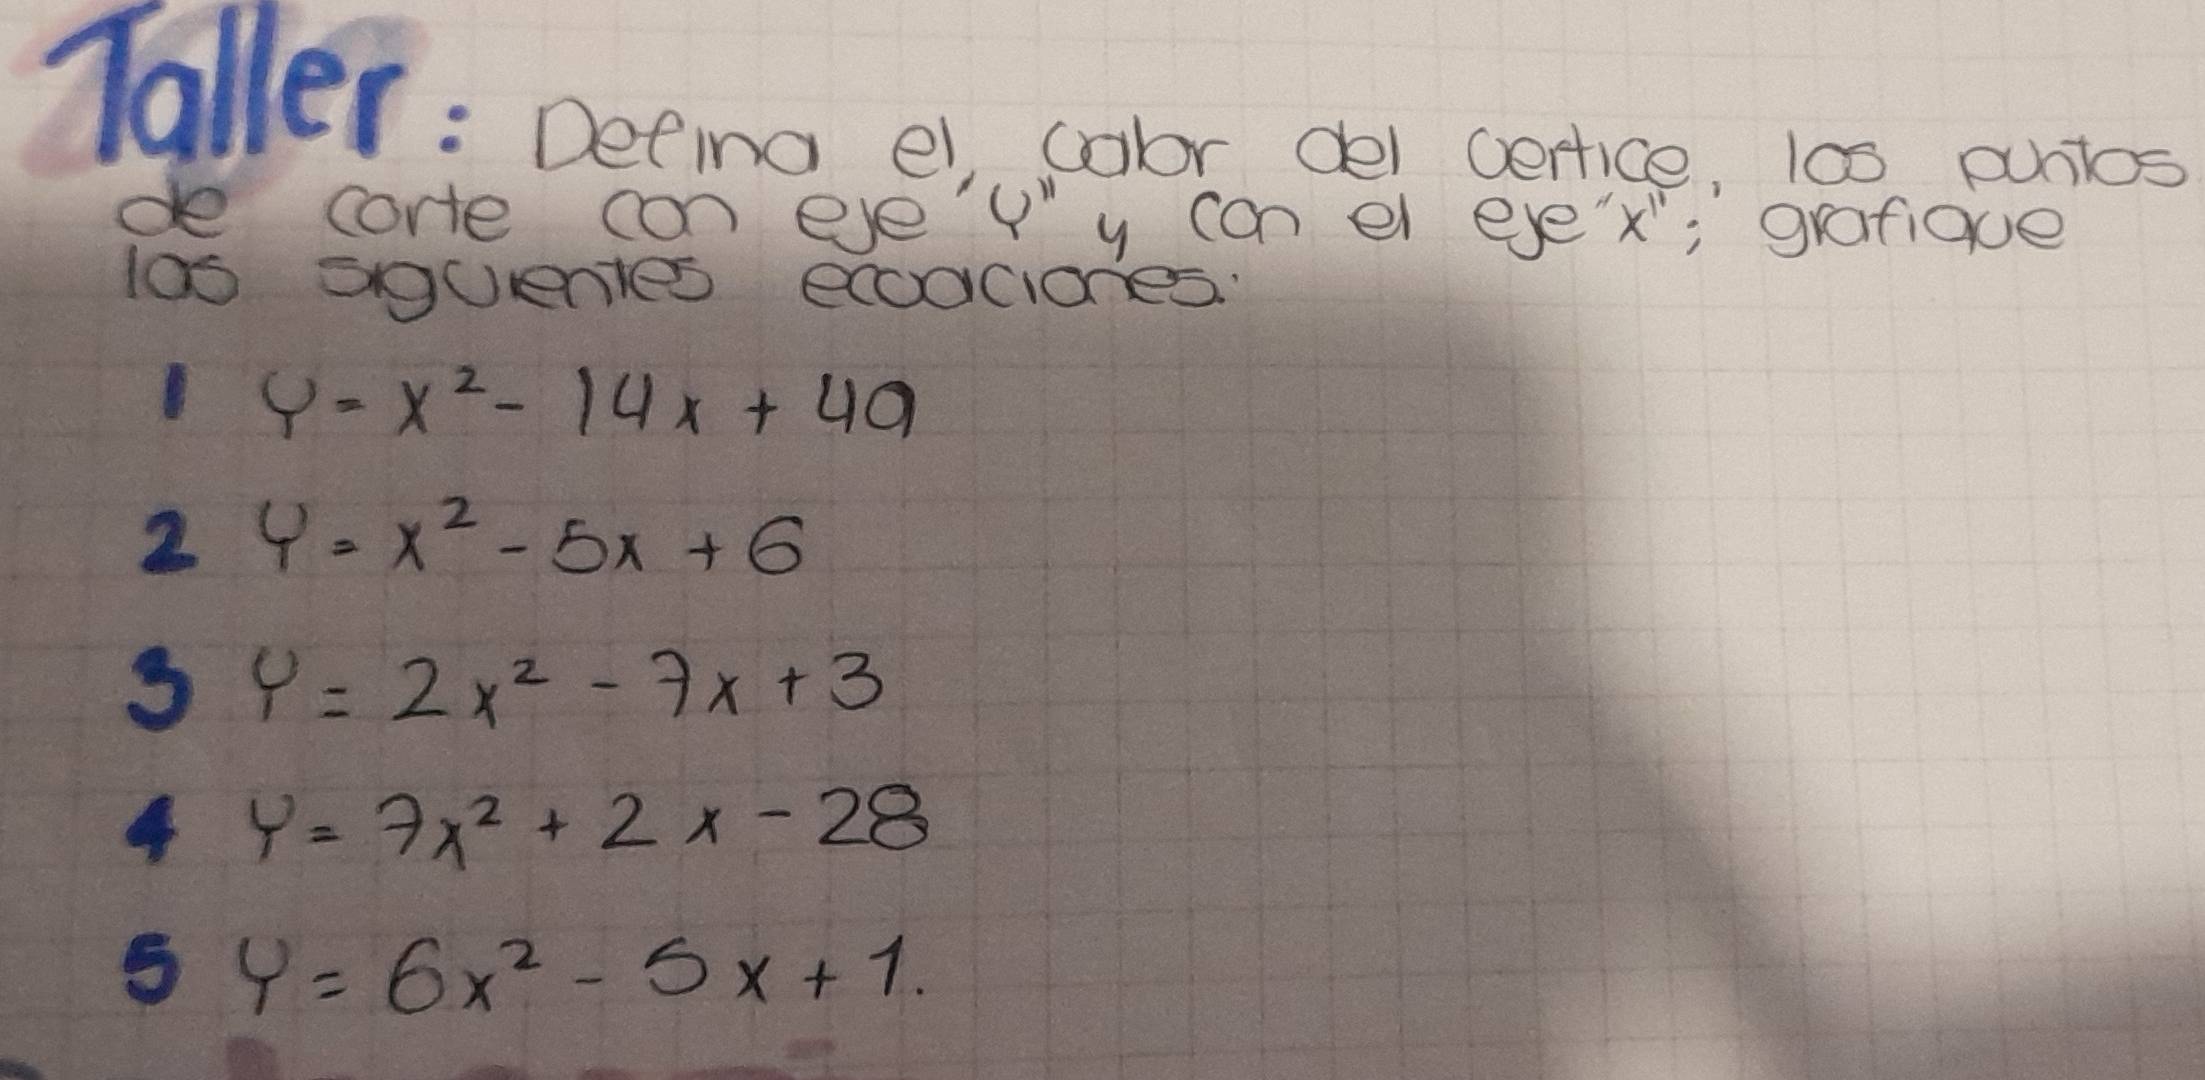 Taller: Defina el valor del vertice, los puntos
de corte con eje "Y" y con el eje "x"; grafique
las siguientes ecuaciones:
1 Y = x² - 14x + 49
2 Y = x² - 5x + 6
3 Y = 2x² - 7x + 3
4 Y = 7x² + 2x - 28
5 Y = 6x² - 5x + 1.